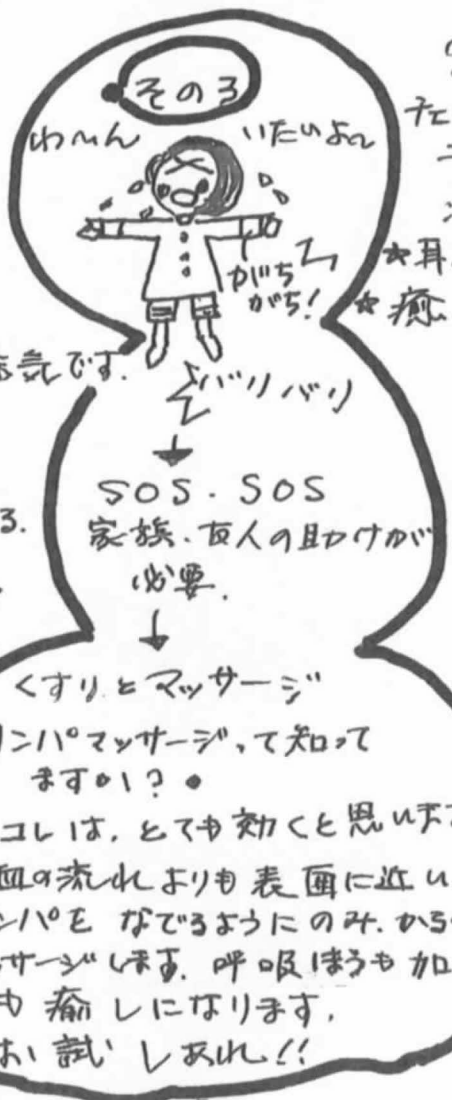 その3
わ〜ん いたいよ〜
がち
がち!
★耳
★癒
気です。
バリバリ
SOS・SOS
家族、友人の助けが
必要。
る。
くすりとマッサージ
ンパマッサージって知って
ますか?
コレは、とても効くと思いま
血の流れよりも表面に近い
ンパを なでるようにのみ、かる
サージします。呼吸ほうも加
も 癒しになります。
お試しあれ!!